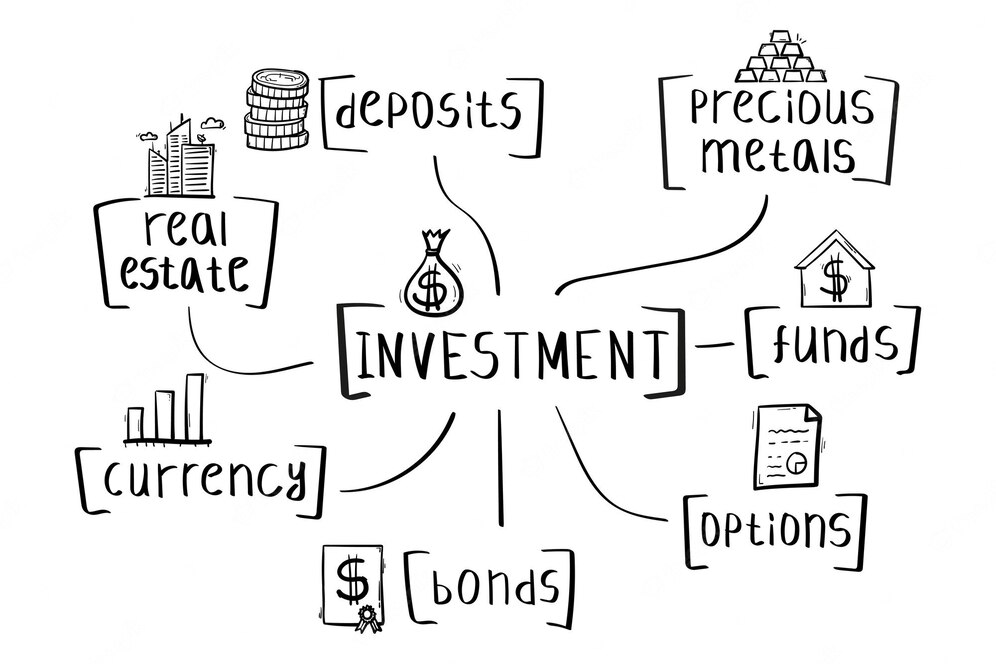 deposits
precious
metals
real
estate
$
INVESTMENT
$
funds
currency
options
$
bonds